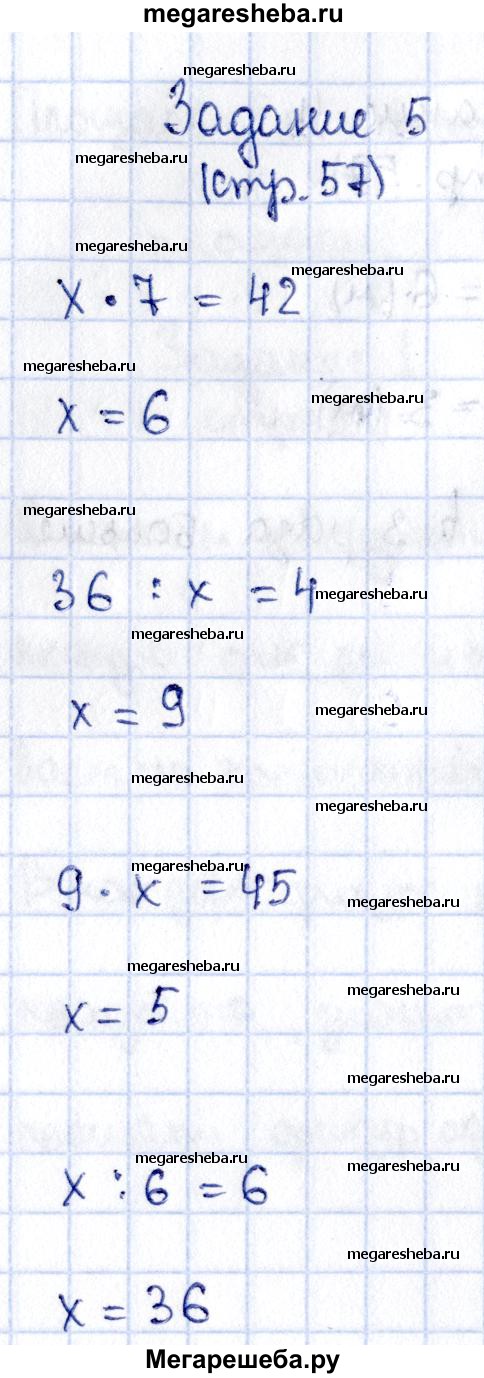 megaresheba.ru
megaresheba.ru
Задание 5
megaresheba.ru
(стр. 57)
megaresheba.ru
megaresheba.ru
x · 7 = 42
megaresheba.ru
megaresheba.ru
x = 6
megaresheba.ru
36 : x = 4
megaresheba.ru
megaresheba.ru
x = 9
megaresheba.ru
megaresheba.ru
megaresheba.ru
megaresheba.ru
9 · x = 45
megaresheba.ru
megaresheba.ru
megaresheba.ru
x = 5
megaresheba.ru
megaresheba.ru
megaresheba.ru
x : 6 = 6
megaresheba.ru
x = 36
Мегарешеба.ру